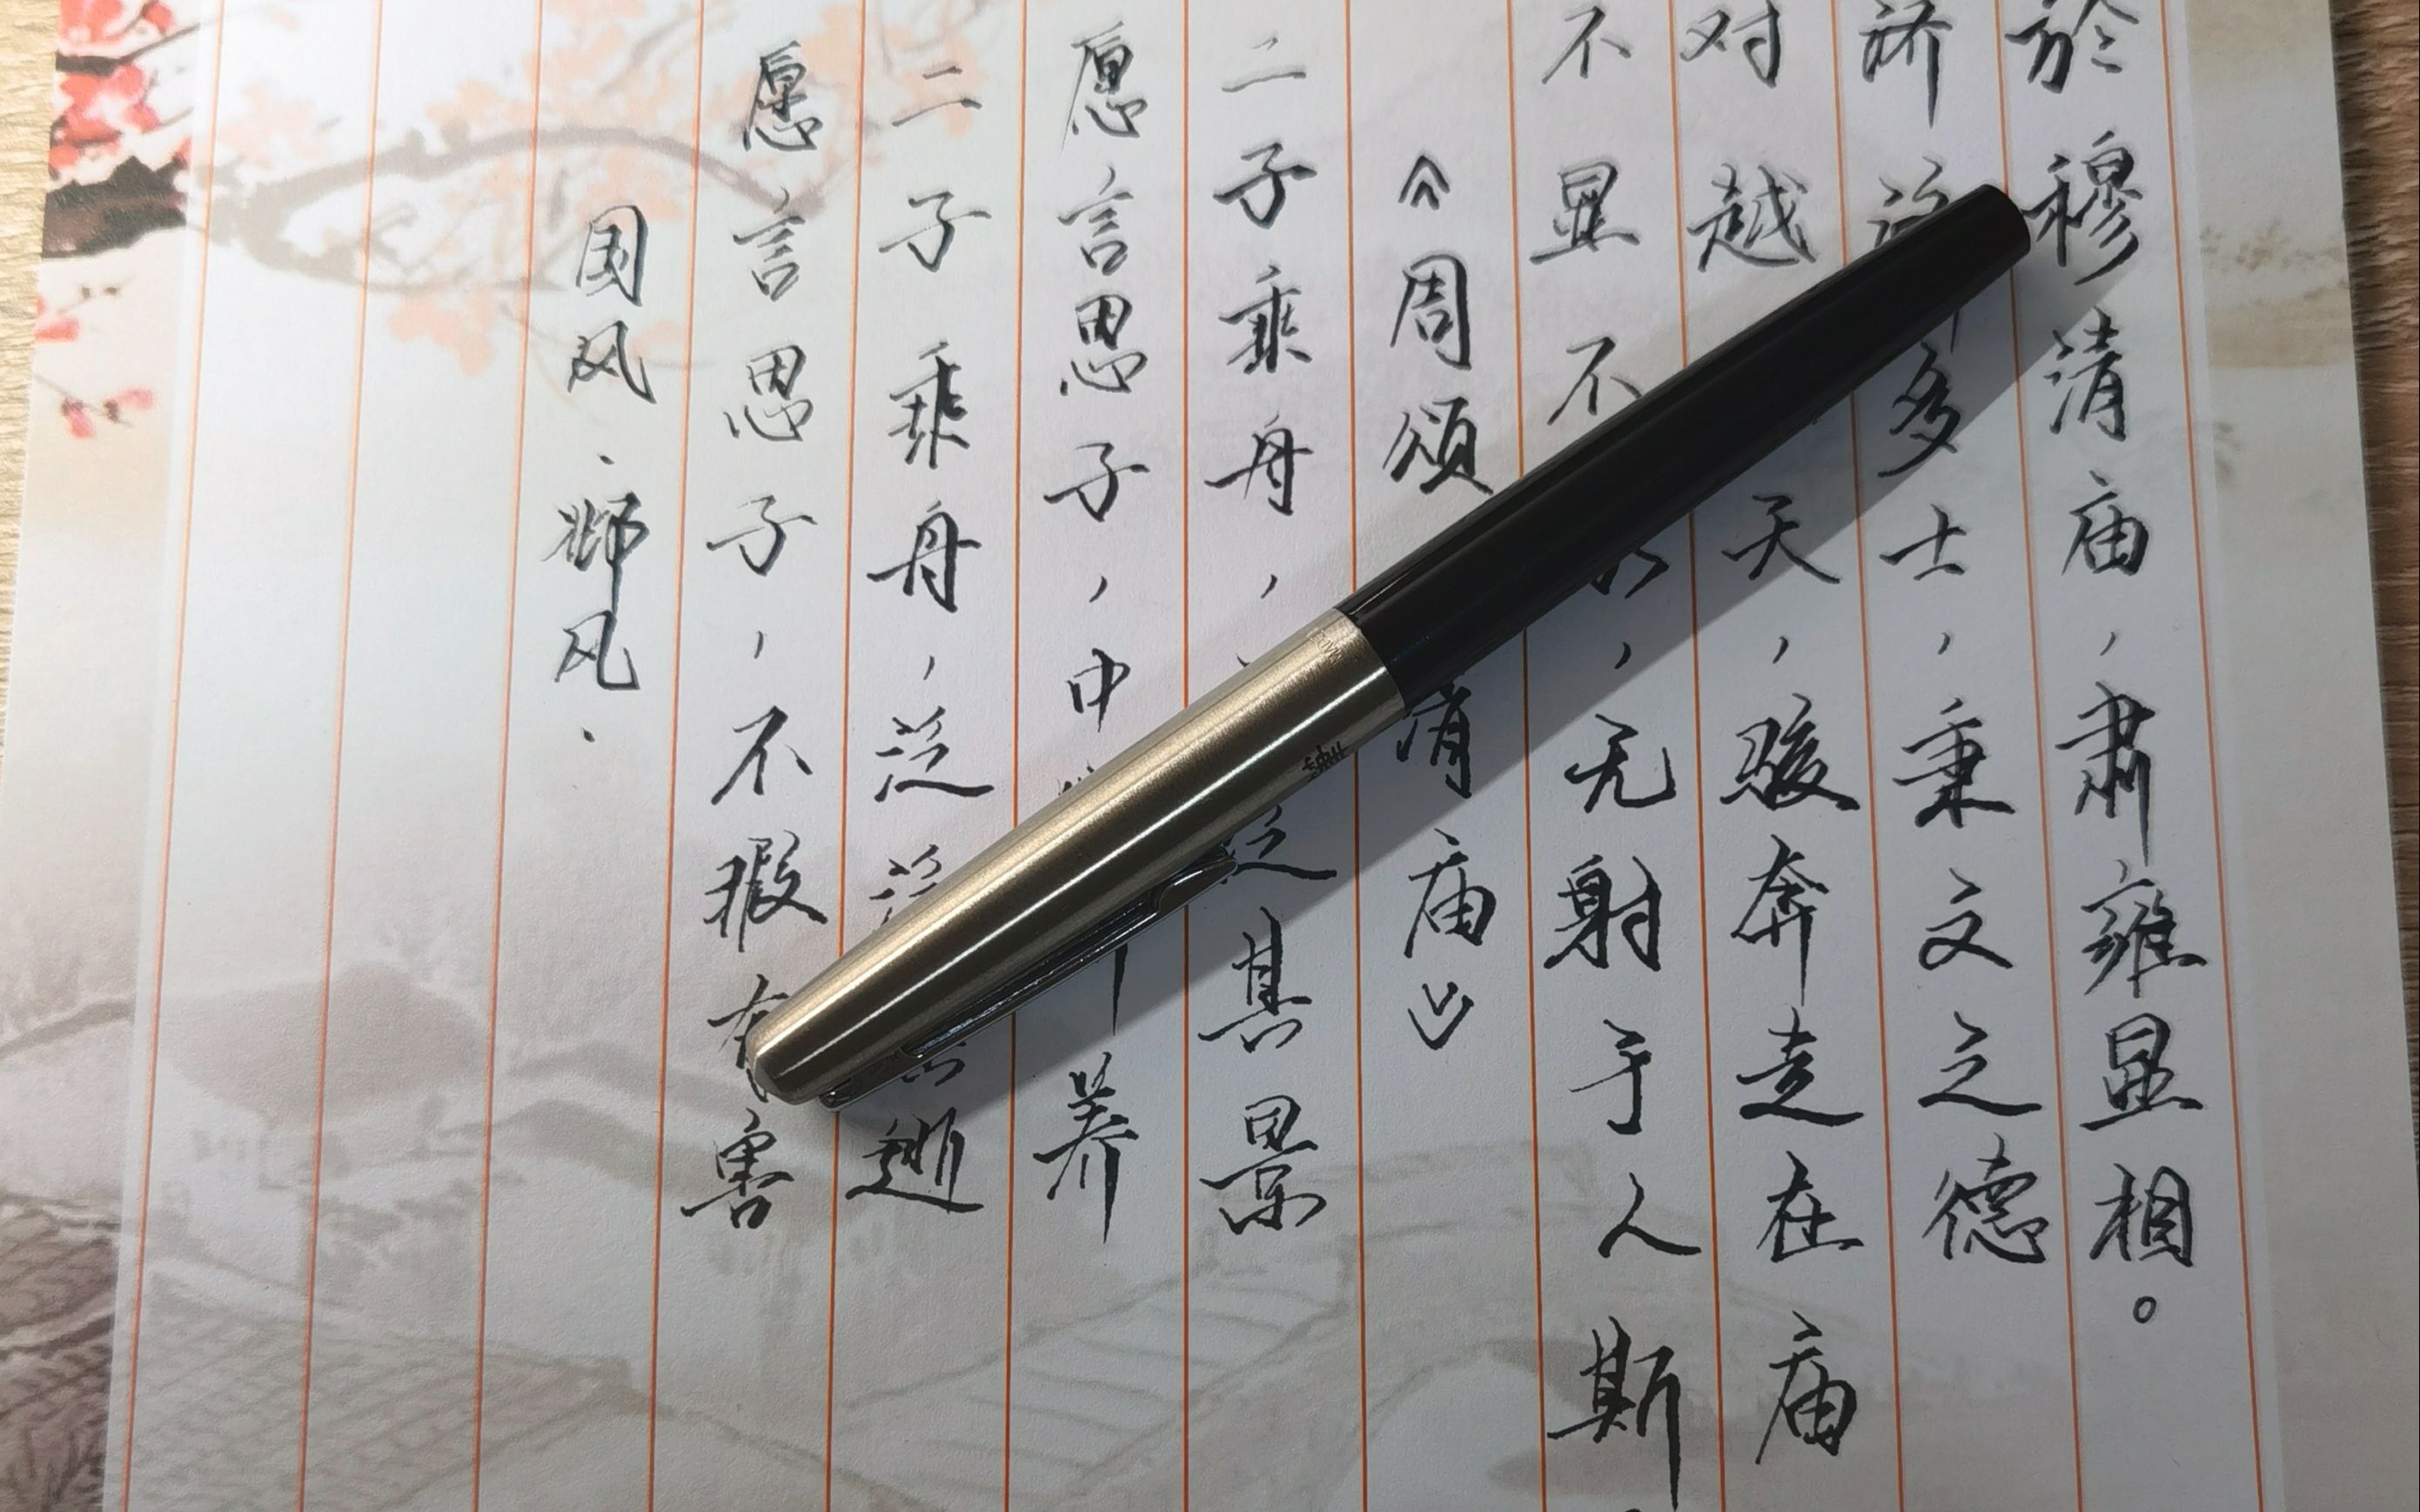 於穆清庙，肃雍显相。
济济多士，秉文之德
对越 天，骏奔走在庙
不显不 ，无射于人斯
《周颂 清庙》
二子乘舟，泛其景
愿言思子，中 养
二子乘舟，泛泛 逝
愿言思子，不瑕有害
国风·邶风·